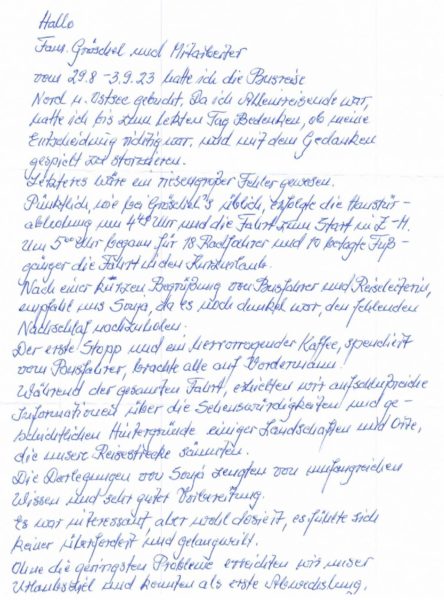 Hallo
Fam. Gröschel und Mitarbeiter
vom 29.8 - 3.9.23 hatte ich die Busreise
Nord u. Ostsee gebucht. Da ich Alleinreisende war,
hatte ich bis zum letzten Tag Bedenken, ob meine
Entscheidung richtig war, und mit dem Gedanken
gespielt zu stornieren.
Letzteres wäre ein riesengroßer Fehler gewesen.
Pünktlich, wie bei Gröschel's üblich, erfolgte die Haustür-
abholung um Uhr und die Fahrt zum Start in Z-H.
Um 5⁰⁰ Uhr begann für 18 Radfahrer und 10 betagte Fuß-
gänger die Fahrt in den Kurzurlaub.
Nach einer kurzen Begrüßung von Busfahrer und Reiseleiterin,
empfahl uns Sonja, da es noch dunkel war, den fehlenden
Nachschlaf nachzuholen.
Der erste Stopp und ein hervorragender Kaffee, spendiert
vom Busfahrer, brachte alle auf Vordermann!
Während der gesamten Fahrt, erhielten wir aufschlußreiche
Informationen über die Sehenswürdigkeiten und ge-
schichtlichen Hintergründe einiger Landschaften und Orte,
die unsere Reisestrecke säumten.
Die Darlegungen von Sonja zeugten von umfangreichen
Wissen und sehr guter Vorbereitung.
Es war interessant, aber wohl dosiert, es fühlte sich
keiner überfordert und gelangweilt.
Ohne die geringsten Probleme erreichten wir unser
Urlaubsziel und konnten als erste Abwechslung,